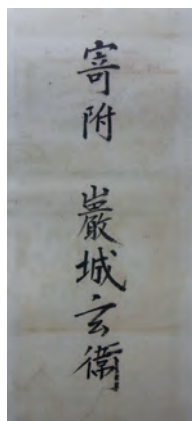 寄附　巖城玄衛